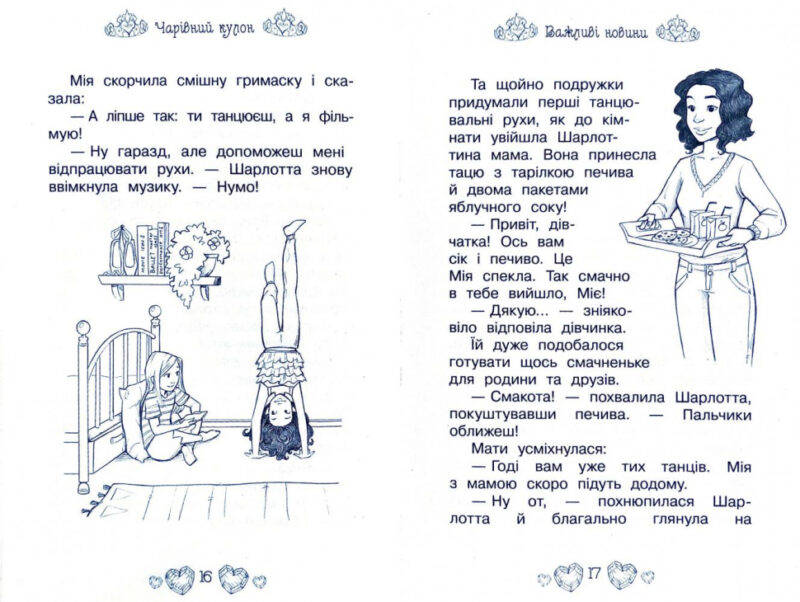 Чарівний кулон
Мія скорчила смішну гримаску і ска-
зала:
— А ліпше так: ти танцюєш, а я філь-
мую!
— Ну гаразд, але допоможеш мені
відпрацювати рухи. — Шарлотта знову
ввімкнула музику. — Нумо!
16
Важливі новини
Та щойно подружки
придумали перші танцю-
вальні рухи, як до кім-
нати увійшла Шарлот-
тина мама. Вона принесла
тацю з тарілкою печива
й двома пакетами
яблучного соку!
— Привіт, дів-
чатка! Ось вам
сік і печиво. Це
Мія спекла. Так смачно
в тебе вийшло, Міє!
— Дякую... — зніяко-
віло відповіла дівчинка.
Їй дуже подобалося
готувати щось смачненьке
для родини та друзів.
— Смакота! — похвалила Шарлотта,
покуштувавши печива. — Пальчики
оближеш!
Мати усміхнулася:
— Годі вам уже тих танців. Мія
з мамою скоро підуть додому.
— Ну от, — похнюпилася Шар-
лотта й благально глянула на
17